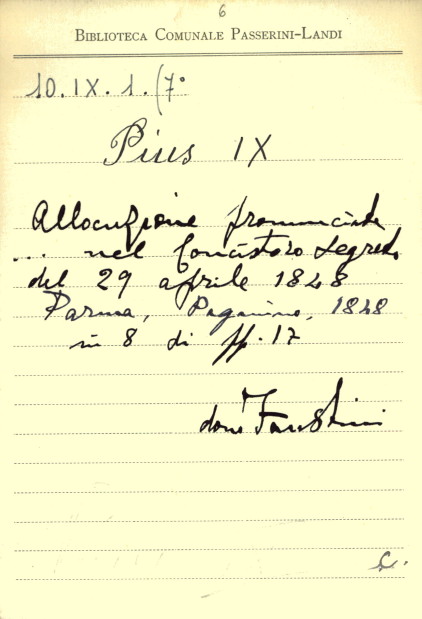 6
BIBLIOTECA COMUNALE PASSERINI-LANDI
10.IX.1.(7°
Pius IX
Allocuzione pronunciata
... nel Concistoro Segreto
del 29 aprile 1848
Parma, Paganino, 1848
in 8 di pp. 17
dono Faustini